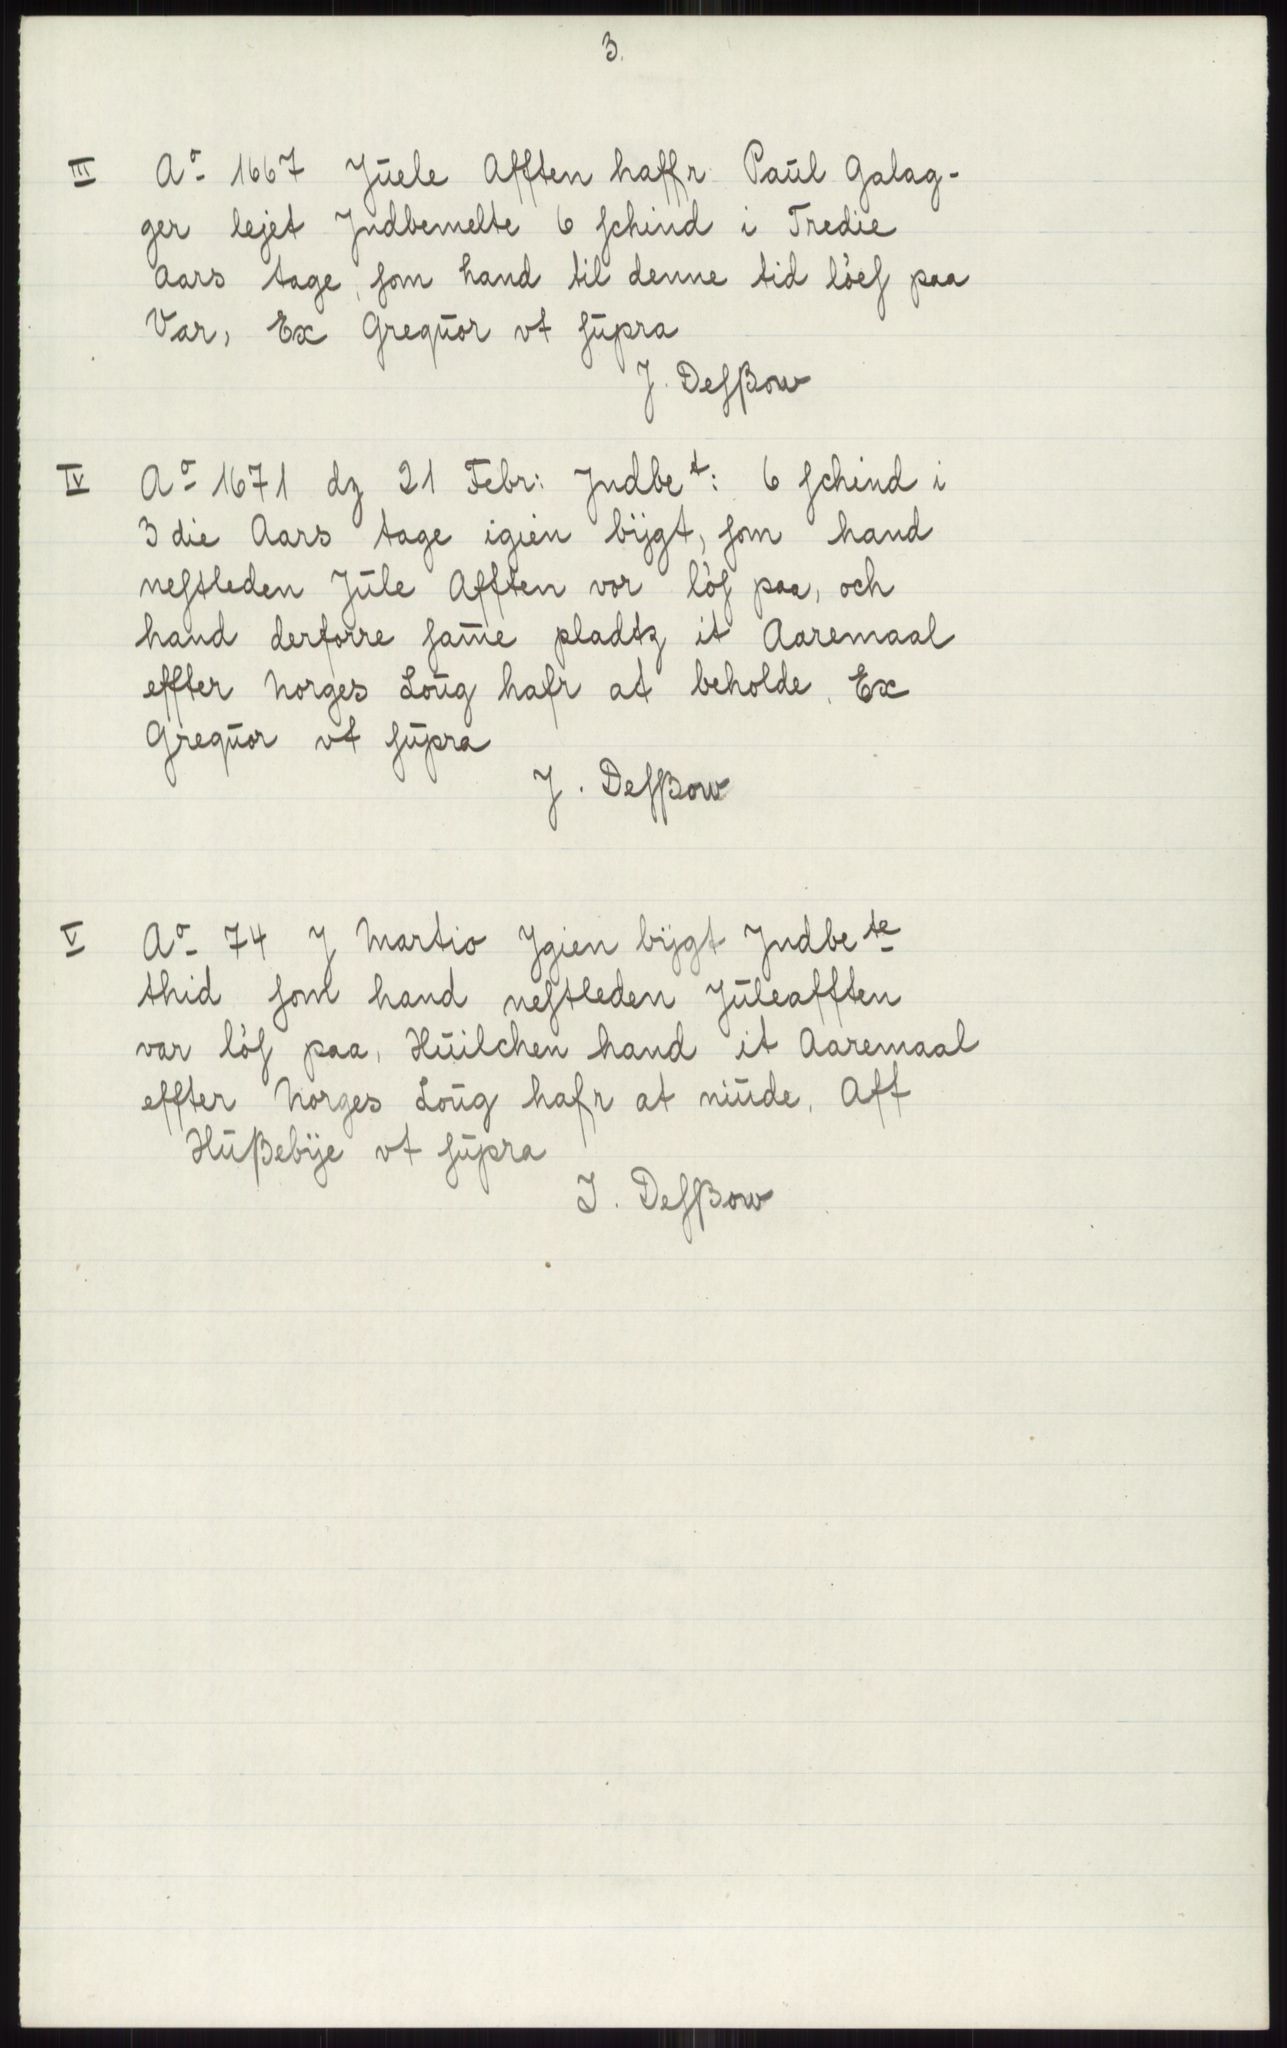 3.
III Aº 1667 Jūele Afften haffr Paūl Galag-
ger lejet Jndbemelte 6 schind i Tredie
Aars tage, som hand til denne tid lòes paa
Var, Ex Greqūor vt sūpra
J. Desßow
IV Aº 1671 dz 21 Febr: Jndbeᵗ: 6 schind i
3 die Aars tage igien bÿgt, som hand
nestleden Jūle Afften vor lòs paa, och
hand derforre sam̄e pladtz it Aaremaal
effter Norges Loūg hafr at beholde. Ex
Greqūor vt sūpra
J. Desßow
V Aº 74 J Martio Jgien bÿgt Jndbeᵗᵉ
thid som hand nestleden Jūleafften
var lòs paa, Hūilchen hand it Aaremaal
effter Norges Loūg hafr at niūde. Aft
Hūßebÿe vt sūpra
J. Desßow